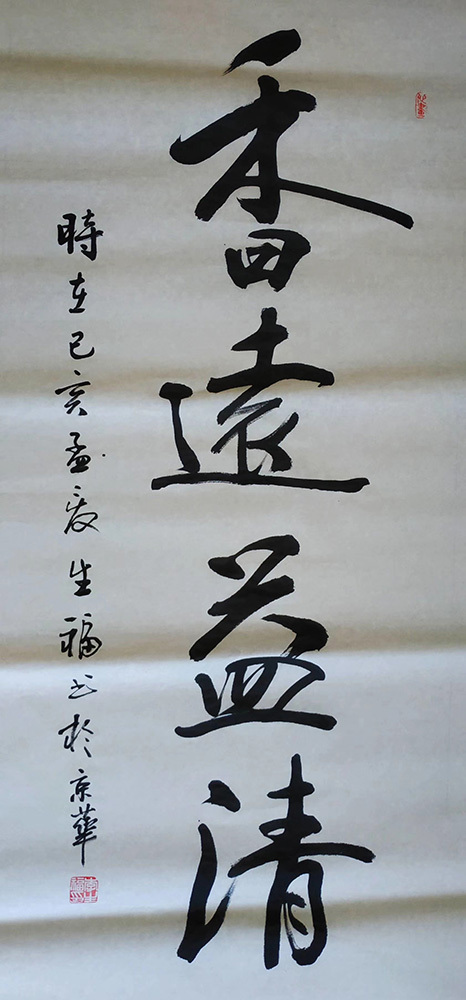 香遠益清
時在己亥孟夏生福书於京華